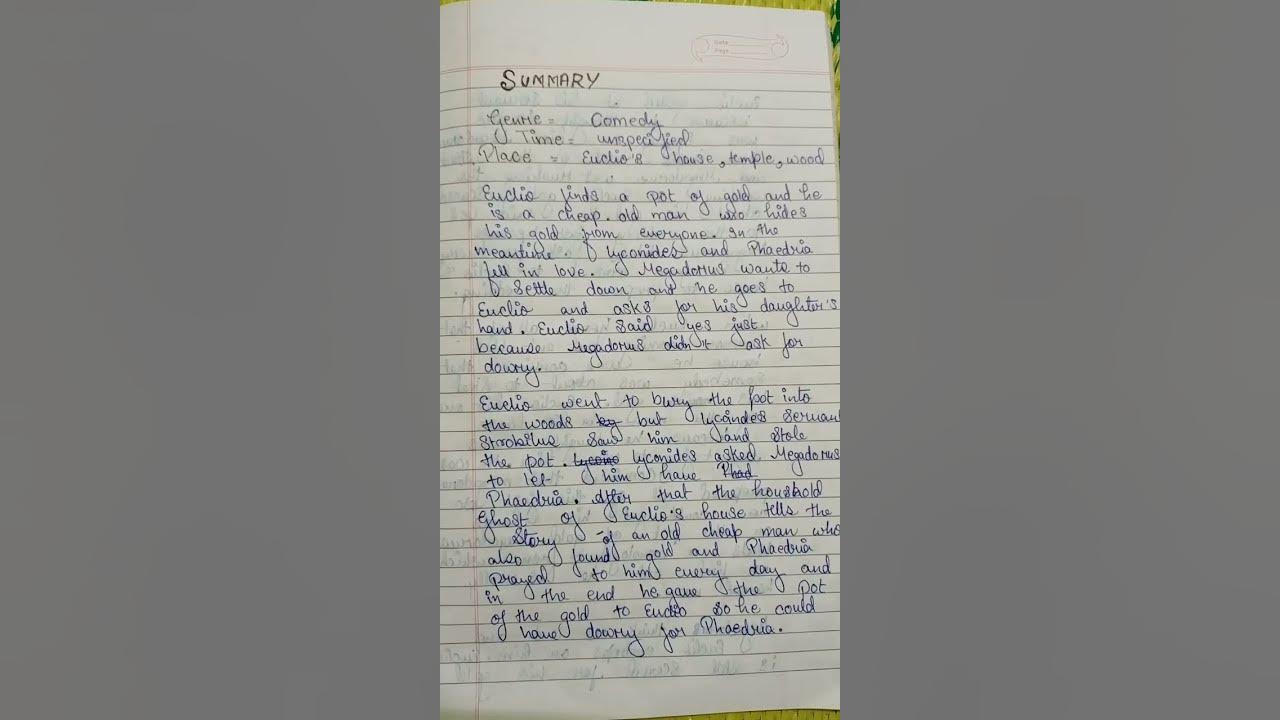 Date
Page
SUMMARY
Genre = Comedy
Time = unspecified
Place = Euclio's house, temple, wood
Euclio finds a pot of gold and he
is a cheap old man who hides
his gold from everyone. In the
meantime lyconides and Phaedria
fell in love. Megadorus wants to
Settle down and he goes to
Euclio and asks for his daughter's
hand. Euclio said yes just
because Megadorus didn't ask for
dowry.
Euclio went to bury the pot into
the woods but lycondes Servant
Strobilus Saw him and Stole
the pot. lyconides asked Megadorus
to let him have Phad
Phaedria. After that the houshold
Ghost of Euclio's house tells the
Story of an old cheap man who
also found gold and Phaedria
prayed to him every day and
in the end he gave the pot
of the gold to Euclio so he could
have dowry for Phaedria.